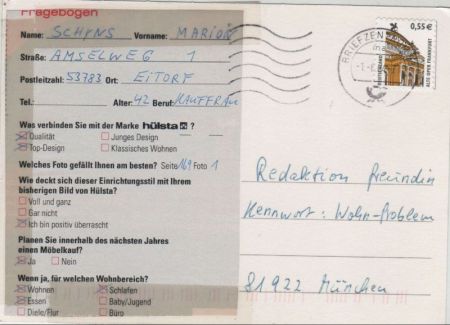 Fragebogen
Name: SCHYNS Vorname: MARION
Straße: AMSELWEG 1
Postleitzahl: 53783 Ort: EITORF
Tel.: Alter: 42 Beruf: KAUFFRAU
Was verbinden Sie mit der Marke hülsta ?
Qualität Junges Design
Top-Design Klassisches Wohnen
Welches Foto gefällt Ihnen am besten? Seite 169 Foto 1
Wie deckt sich dieser Einrichtungsstil mit Ihrem
bisherigen Bild von Hülsta?
Voll und ganz
Gar nicht
Ich bin positiv überrascht
Planen Sie innerhalb des nächsten Jahres
einen Möbelkauf?
Ja Nein
Wenn ja, für welchen Wohnbereich?
Wohnen Schlafen
Essen Baby/Jugend
Diele/Flur Büro
BRIEFZEN
0,55 €
ALTE OPER FRANKFURT
Redaktion freundin
Kennwort: Wohn-Problem
81922 München